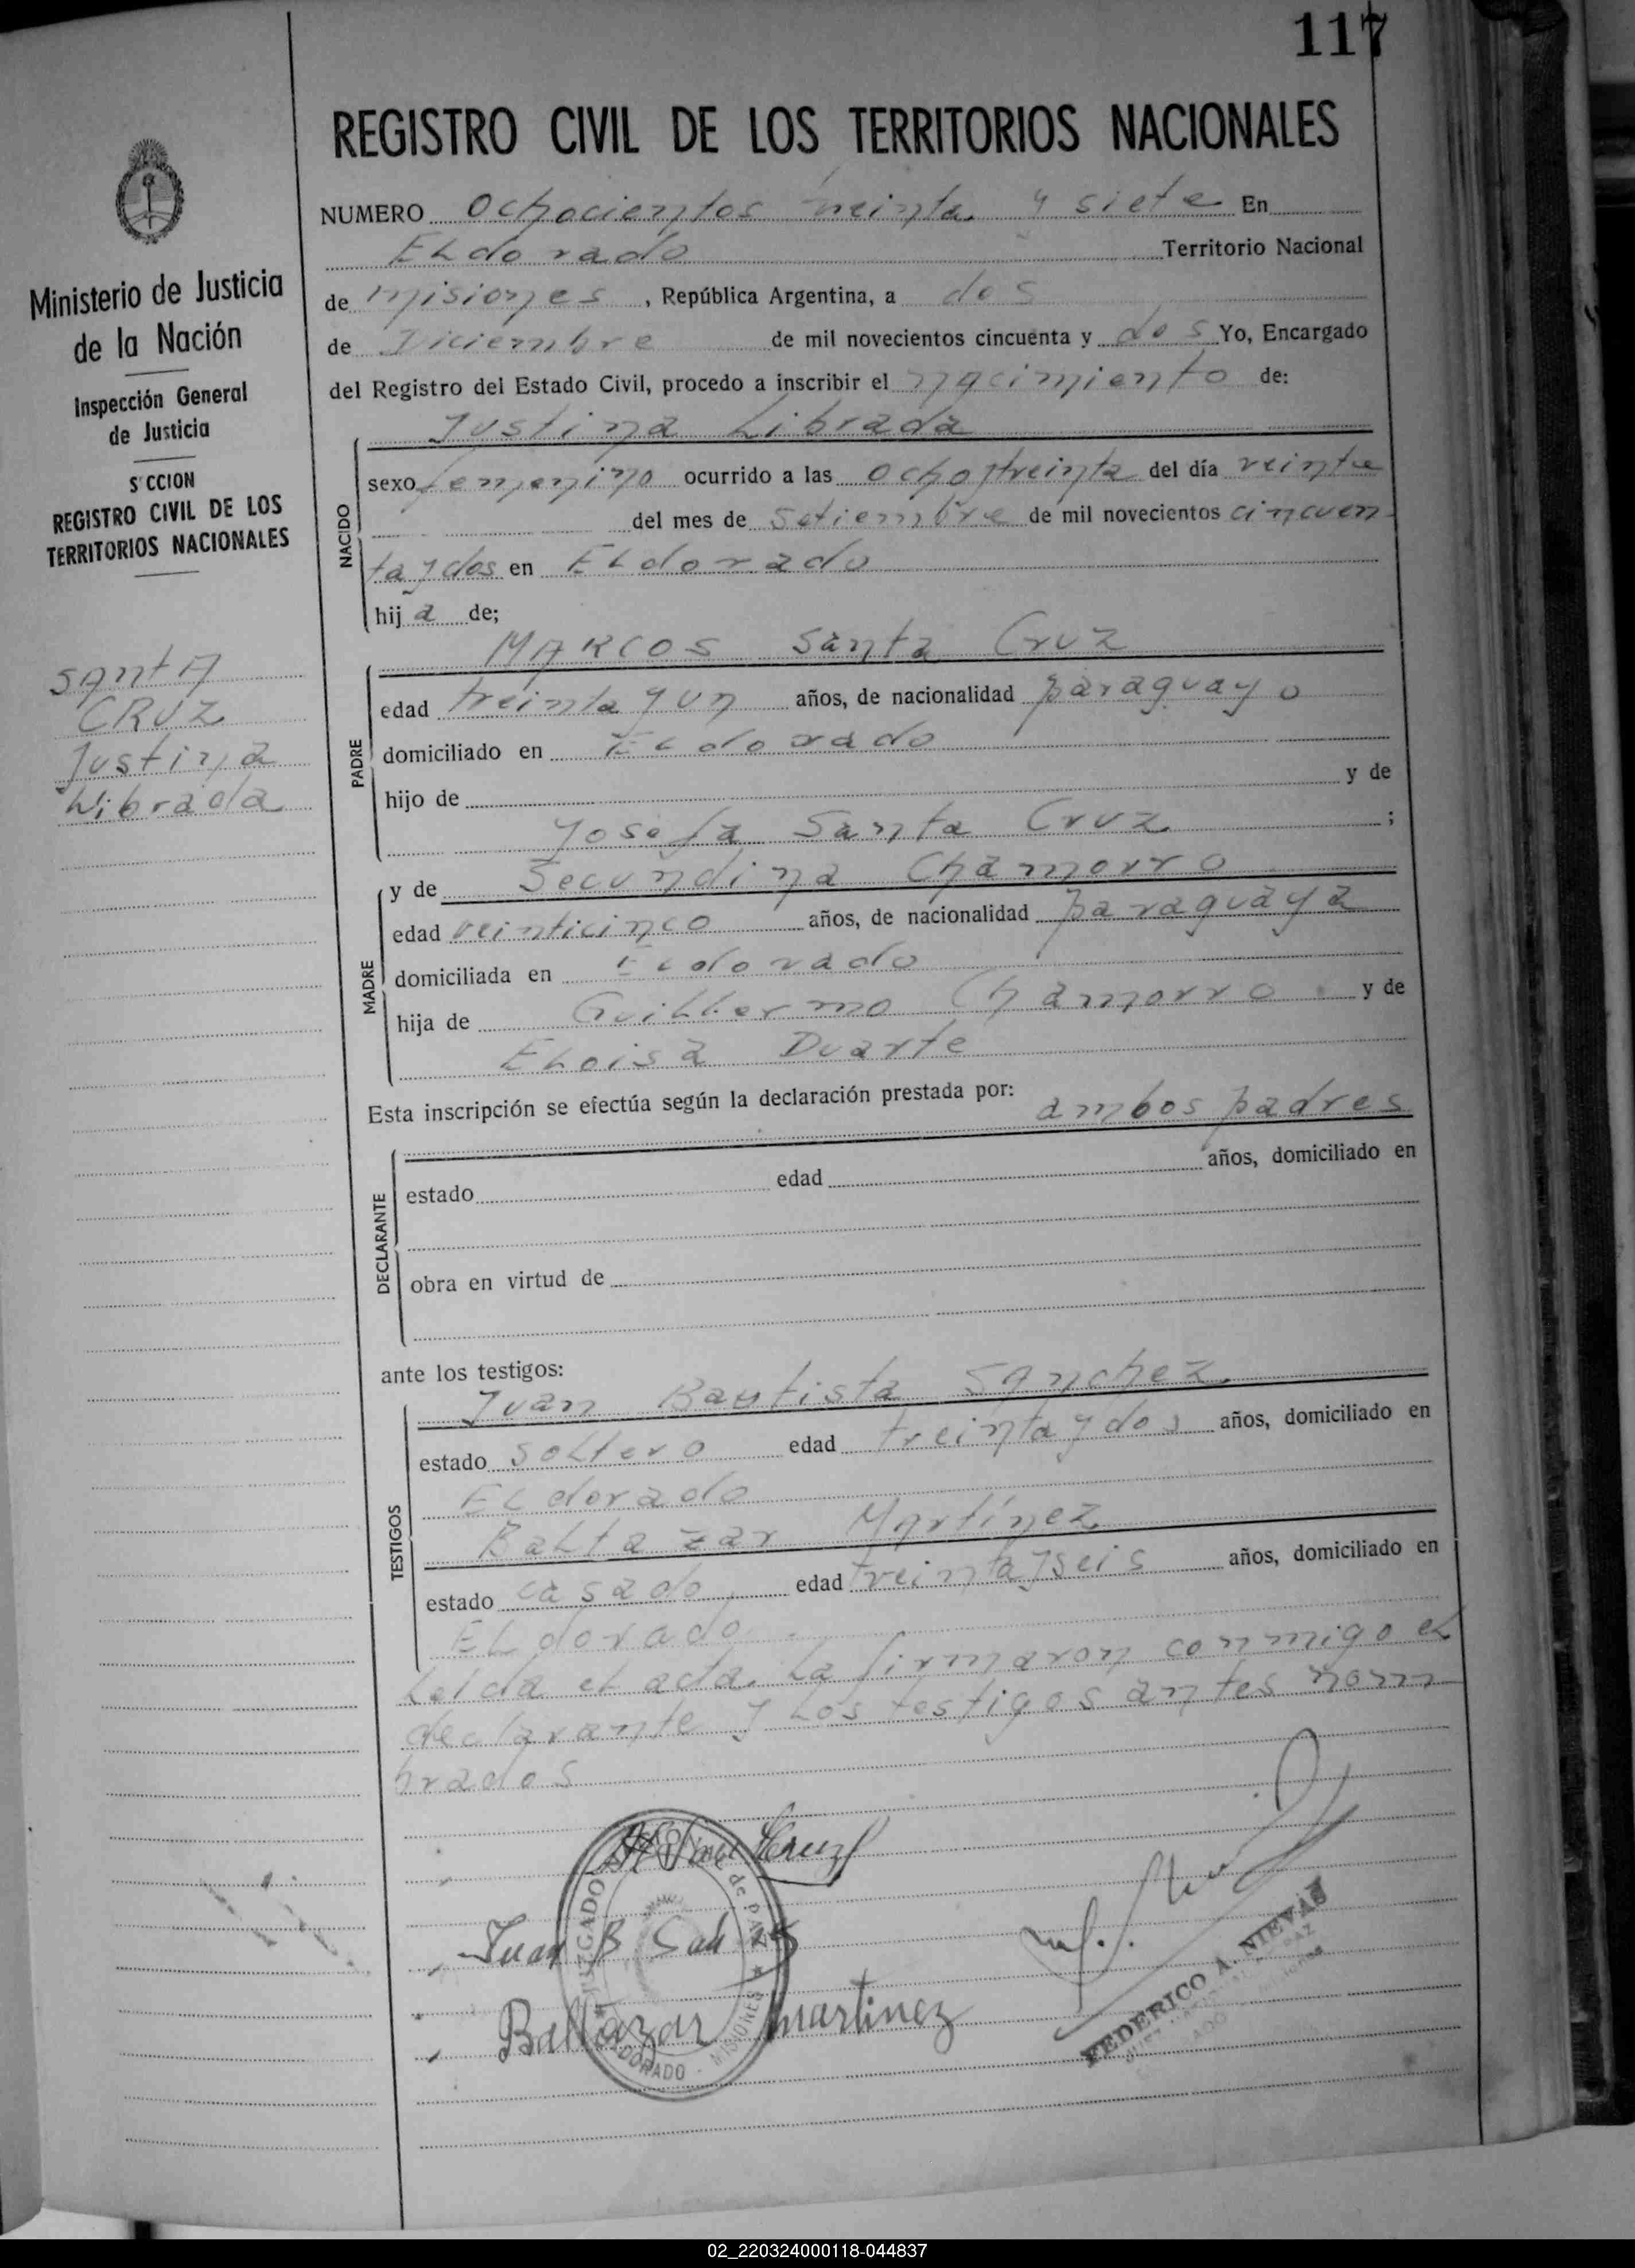 117
REGISTRO CIVIL DE LOS TERRITORIOS NACIONALES
Ministerio de Justicia
de la Nación
Inspección General
de Justicia
S CCION
REGISTRO CIVIL DE LOS
TERRITORIOS NACIONALES
santA
CRUZ
Justina
Librada
NUMERO Ochocientos treinta y siete En
ELdorado Territorio Nacional
de misiones, República Argentina, a dos
de Diciembre de mil novecientos cincuenta y dos Yo, Encargado
del Registro del Estado Civil, procedo a inscribir el nacimiento de:
Justina Librada
NACIDO
sexo femenino ocurrido a las ocho y treinta del día veinte
del mes de Setiembre de mil novecientos cincuen
ta y dos en ELdorado
hij a de;
MARCOS Santa Cruz
PADRE
edad treinta y un años, de nacionalidad paraguayo
domiciliado en ELdorado
hijo de y de
Josefa Santa Cruz ;
y de Secundina Chamorro
MADRE
edad veinticinco años, de nacionalidad paraguaya
domiciliada en ELdorado
hija de Guillermo Chamorro y de
ELoisa Duarte
Esta inscripción se efectúa según la declaración prestada por: ambos padres
DECLARANTE
estado edad años, domiciliado en
obra en virtud de
ante los testigos:
Juan Bautista Sanchez
TESTIGOS
estado soltero edad treinta y dos años, domiciliado en
ELdorado
Baltazar Martínez
estado casado edad treinta y seis años, domiciliado en
ELdorado
Leida el acta, La firmaron conmigo el
declarante y Los testigos antes nom
brados
Juan B San
Baltazar Martinez
JUZGADO de PAZ
ELDORADO - MISIONES
FEDERICO A. NIEVAS
02_220324000118-044837